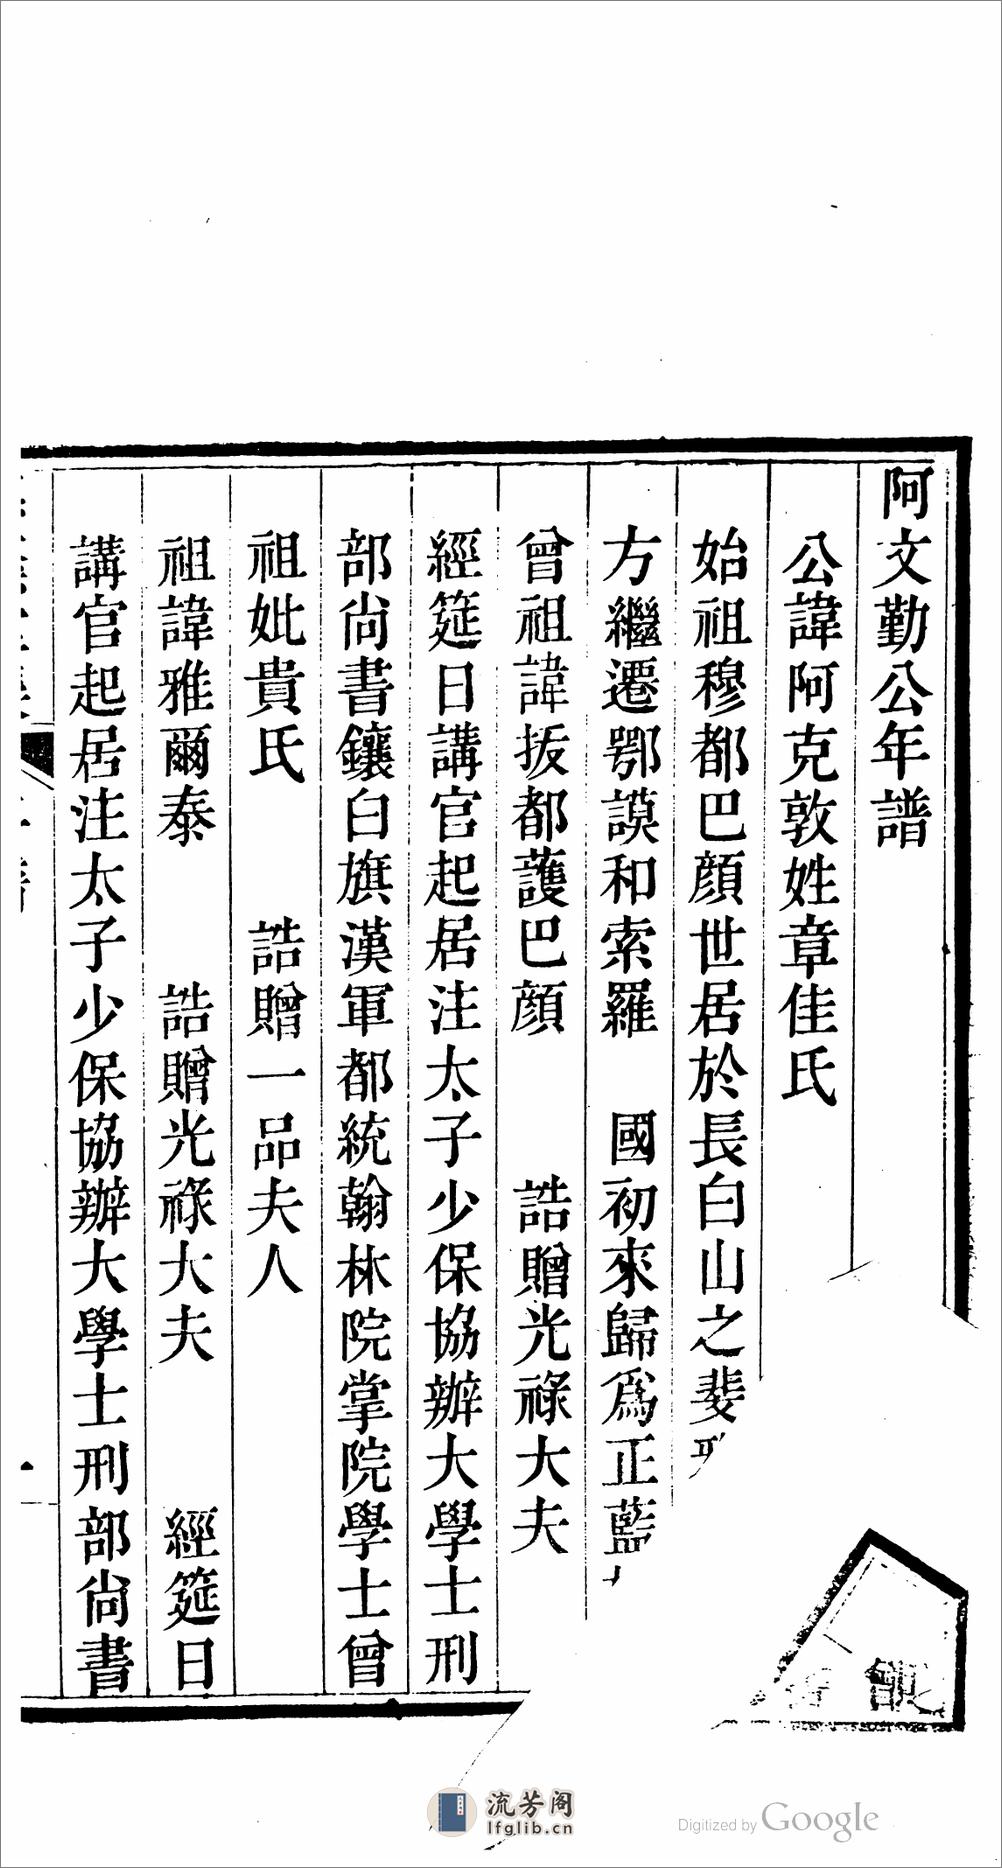 阿文勤公年譜
公諱阿克敦姓章佳氏
始祖穆都巴顔世居於長白山之斐
方繼遷鄂謨和索羅　國初來歸爲正藍
曾祖諱扳都護巴顔　誥贈光祿大夫
經筵日講官起居注太子少保協辦大學士刑
部尚書鑲白旗漢軍都統翰林院掌院學士曾
祖妣貴氏　誥贈一品夫人
祖諱雅爾泰　誥贈光祿大夫　經筵日
講官起居注太子少保協辦大學士刑部尚書
流芳阁
lfglib.cn
Digitized by Google